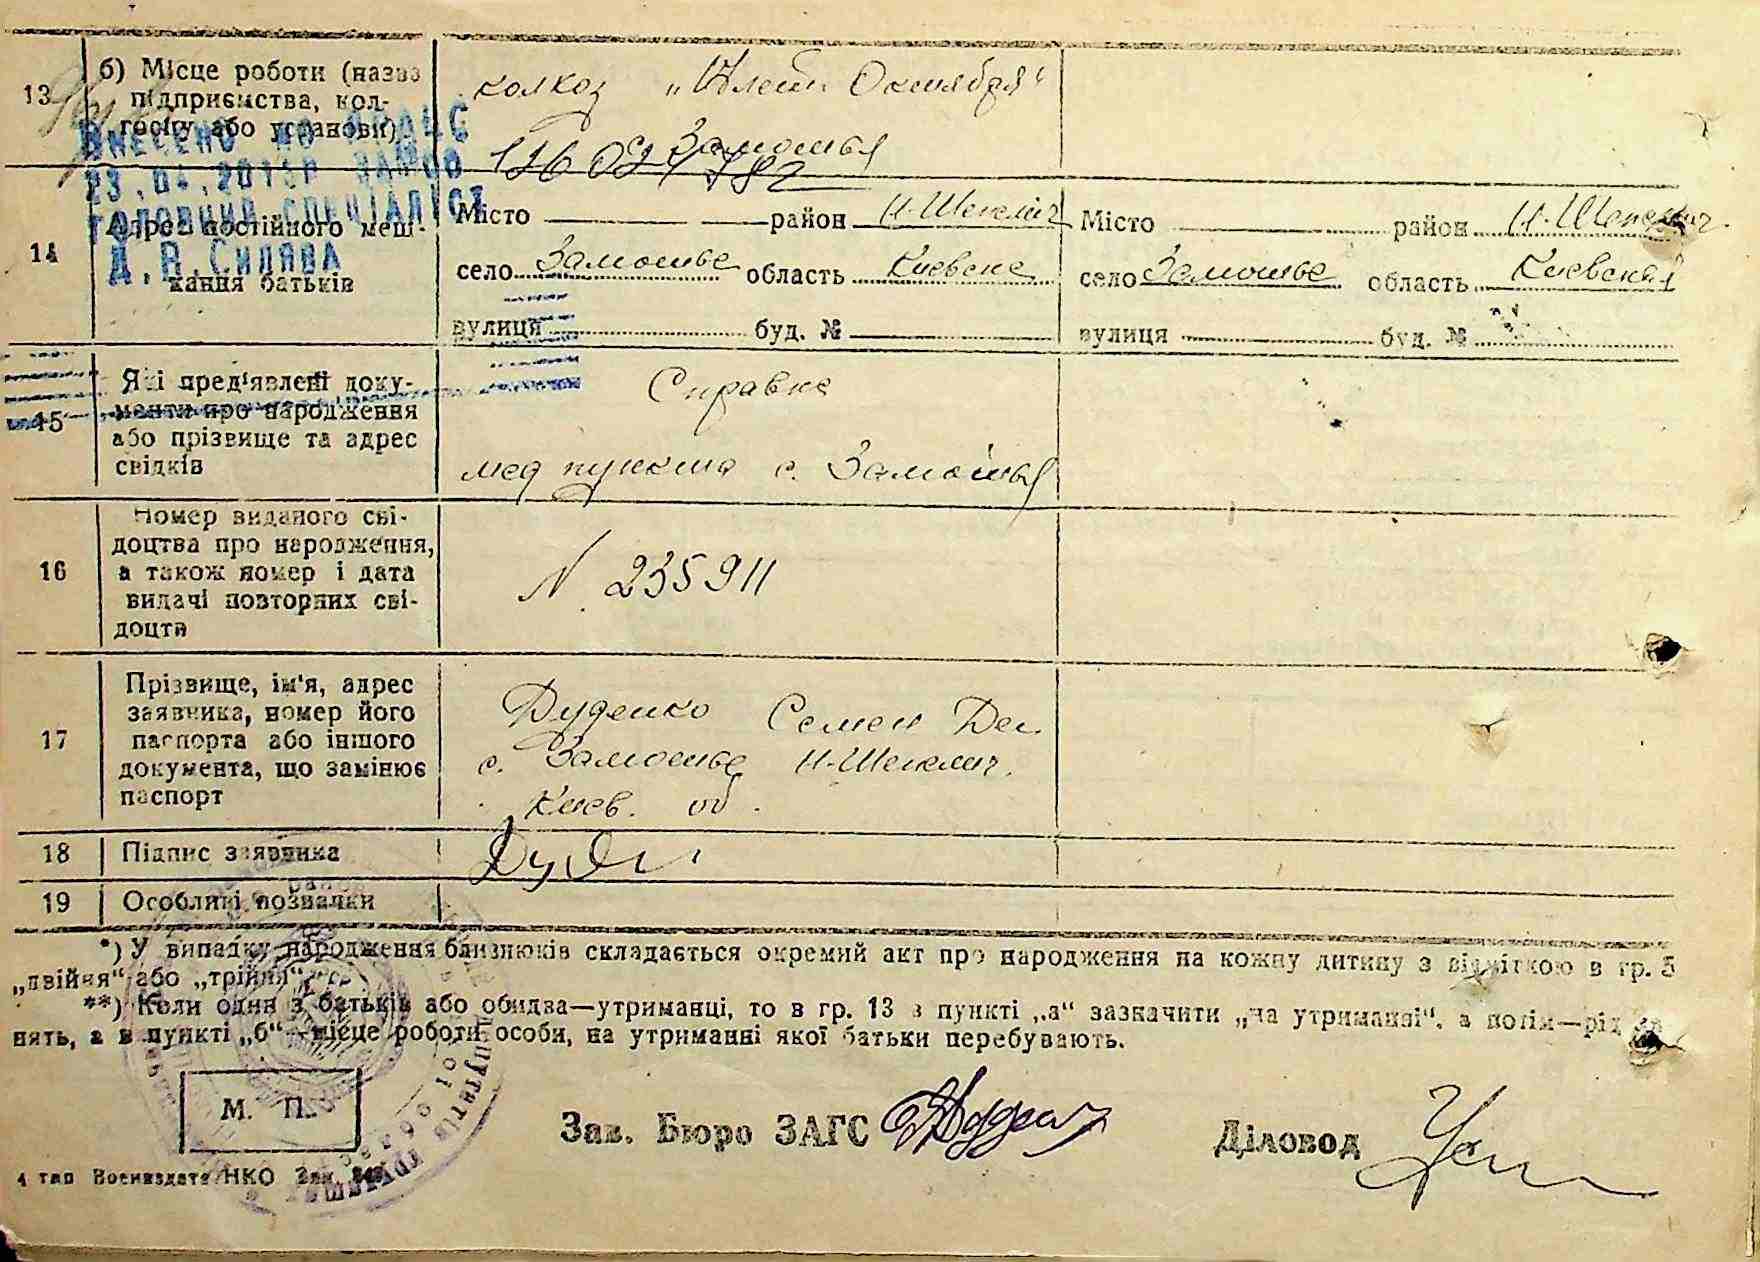 13
б) Місце роботи (назва
підприємства, кол-
госпу або установи)
колхоз Октября"
Замошья
ВНЕСЕНО ДО ДРАЦС
ГОЛОВНИЙ СПЕЦІАЛІСТ
14
Адрес постійного меш-
кання батьків
Місто район Н-Шепелич
село Замошье область Киевска
вулиця буд. №
Місто район Н-Шепелич
село Замошье область Киевская
вулиця буд. №
15
Які пред'явлені доку-
менти про народження
або прізвище та адрес
свідків
Справка
мед пункта с. Замошья
16
Номер виданого сві-
доцтва про народження,
а також номер і дата
видачі повторних сві-
доцтв
N 235911
17
Прізвище, ім'я, адрес
заявника, номер його
паспорта або іншого
документа, що замінює
паспорт
Дуденко Семен
с. Замошье Н-Шепелич.
Киев. об.
18
Підпис заявника
19
Особливі позначки
*) У випадку народження близнюків складається окремий акт про народження на кожну дитину з відміткою в гр. 5
„двійня“ або „трійня“
**) Коли один з батьків або обидва—утриманці, то в гр. 13 в пункті „а“ зазначити „на утриманні“, а потім—рід за
нять, а в пункті „б“—місце роботи особи, на утриманні якої батьки перебувають.
М. П.
Зав. Бюро ЗАГС
Діловод
4 тип Воениздата НКО Зак.